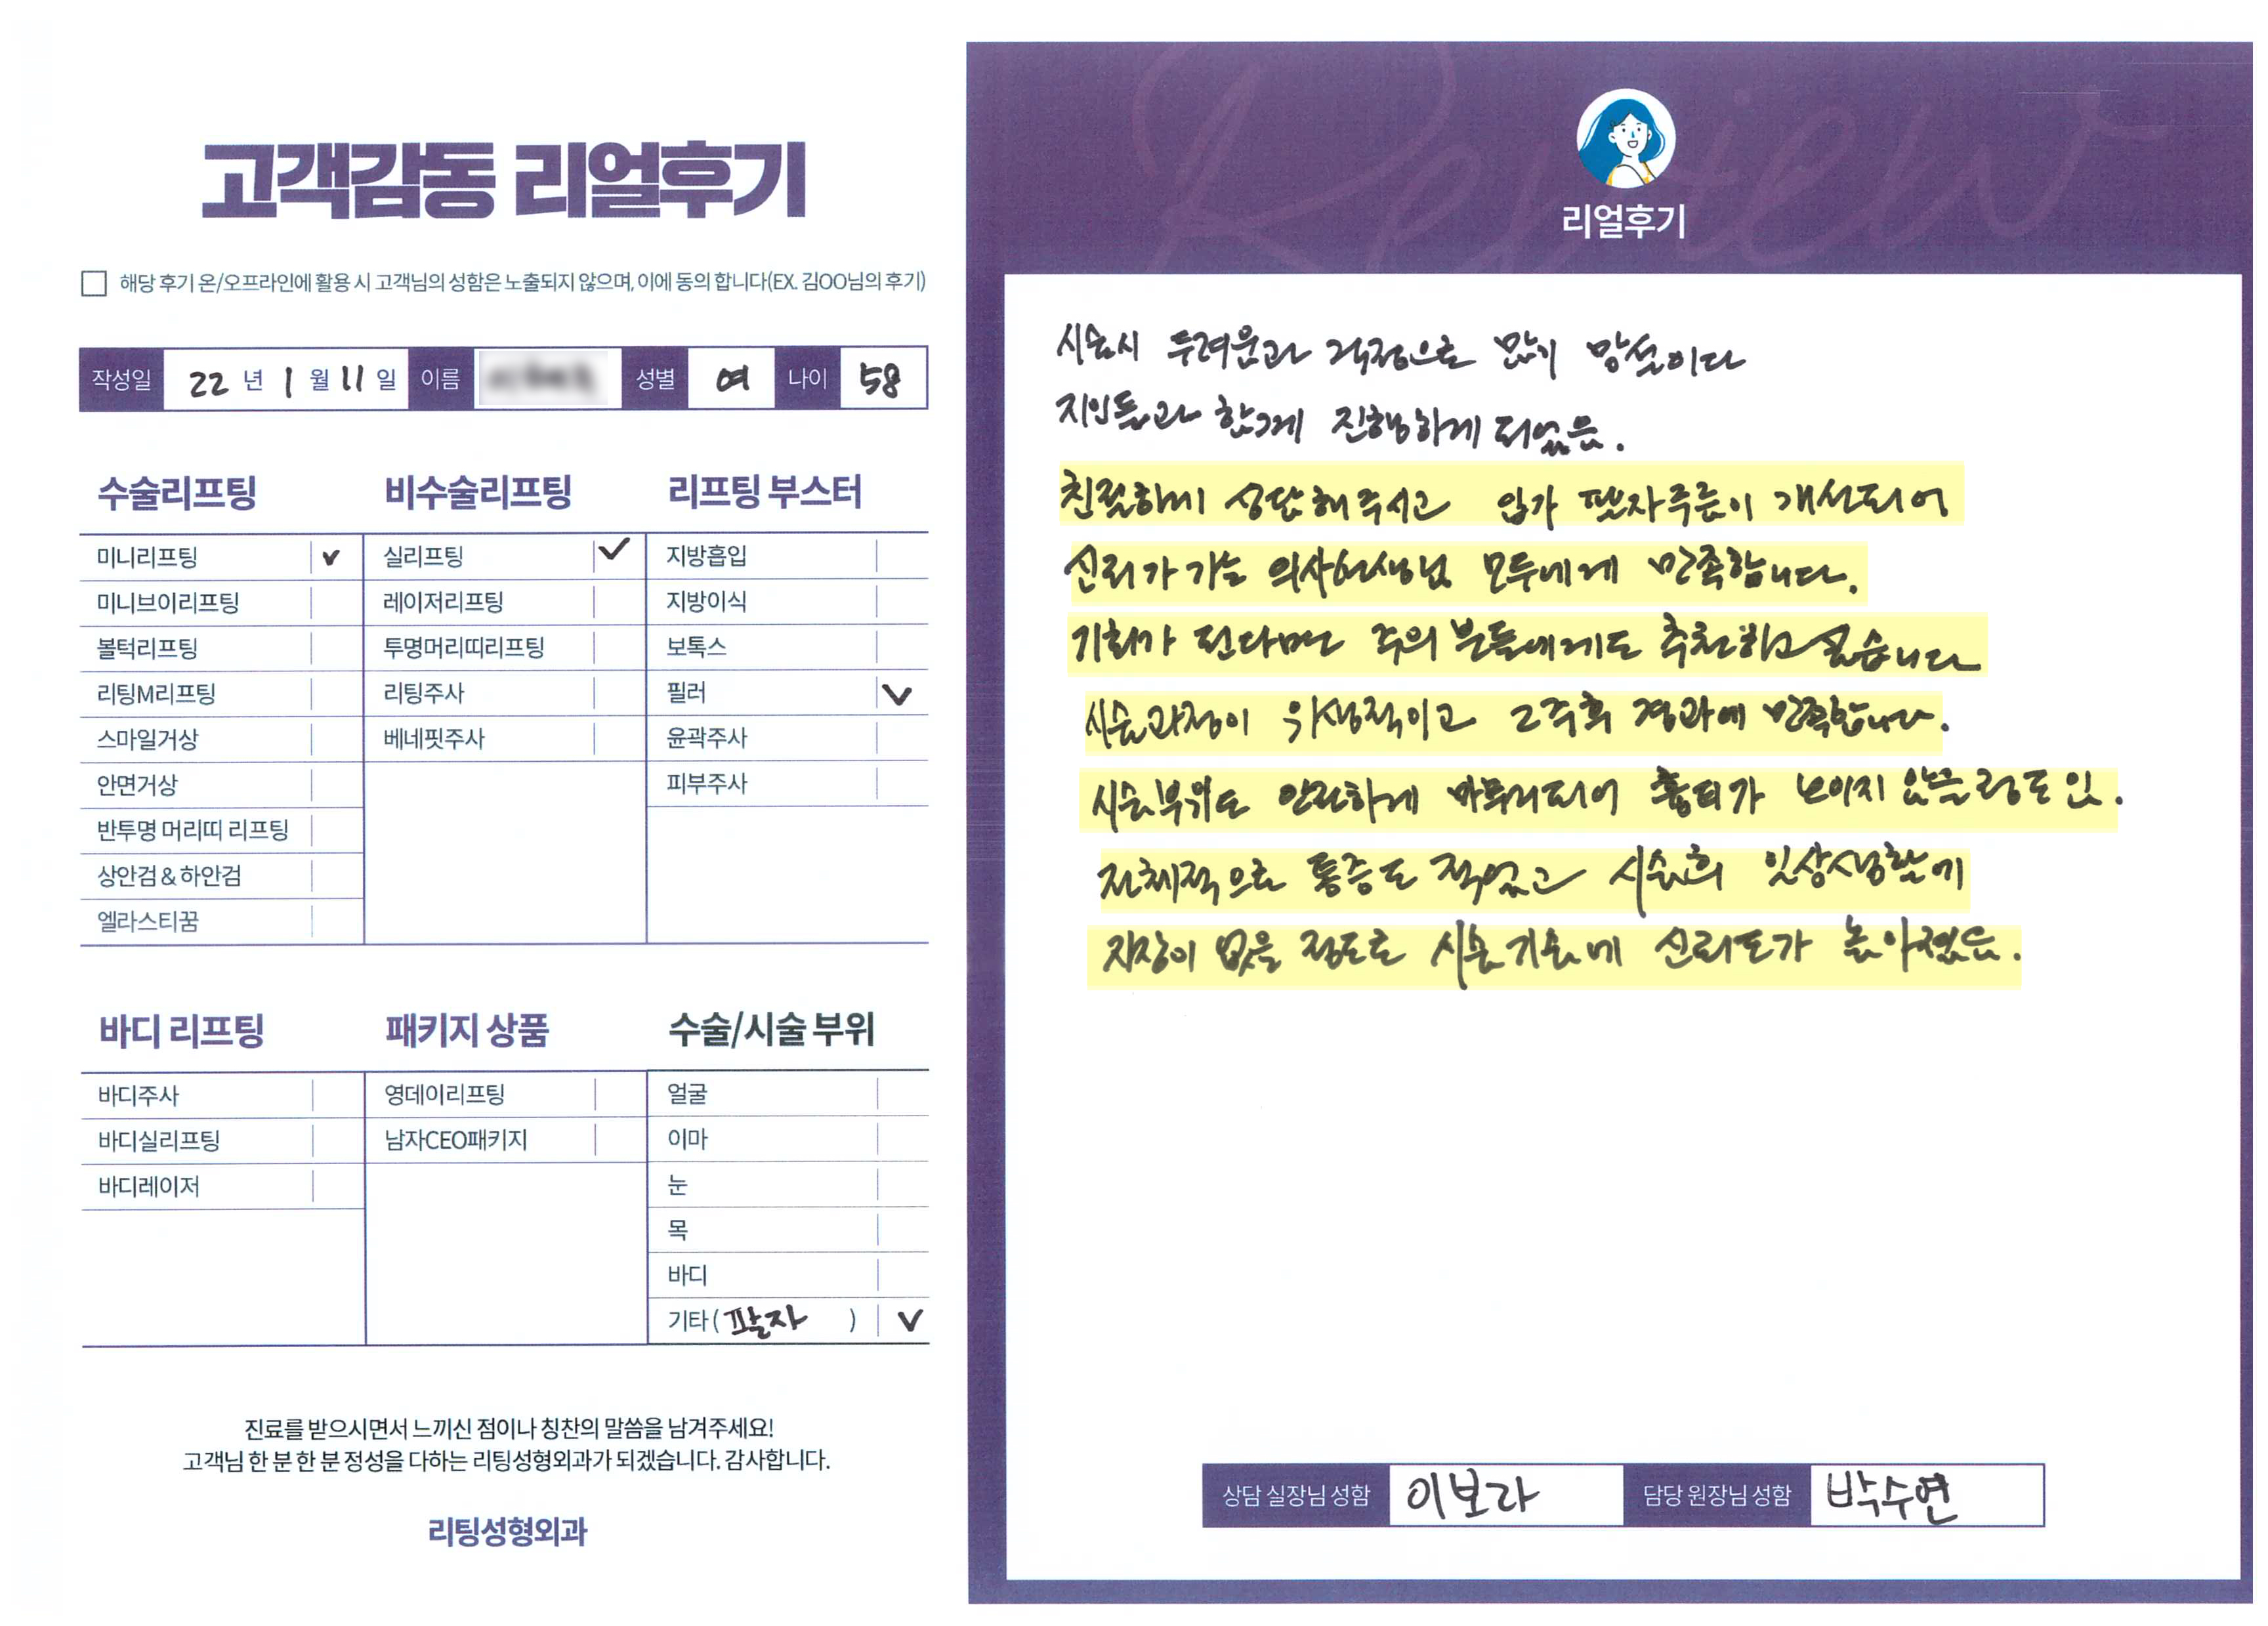 고객감동 리얼후기
해당 후기 온/오프라인에 활용 시 고객님의 성함은 노출되지 않으며, 이에 동의 합니다(EX. 김OO님의 후기)
작성일 22 년 1 월 11 일 이름 성별 여 나이 58
수술리프팅
미니리프팅 v
미니브이리프팅
볼턱리프팅
리팅M리프팅
스마일거상
안면거상
반투명 머리띠 리프팅
상안검 & 하안검
엘라스티꿈
비수술리프팅
실리프팅 ✓
레이저리프팅
투명머리띠리프팅
리팅주사
베네핏주사
리프팅 부스터
지방흡입
지방이식
보톡스
필러 V
윤곽주사
피부주사
바디 리프팅
바디주사
바디실리프팅
바디레이저
패키지 상품
영데이리프팅
남자CEO패키지
수술/시술 부위
얼굴
이마
눈
목
바디
기타 ( 팔자 ) V
진료를 받으시면서 느끼신 점이나 칭찬의 말씀을 남겨주세요!
고객님 한 분 한 분 정성을 다하는 리팅성형외과가 되겠습니다. 감사합니다.
리팅성형외과
Review
리얼후기
시술시 두려움과 걱정으로 많이 망설이다
지인들과 함께 진행하게 되었음.
친절하게 상담해주시고 입가 팔자주름이 개선되어
신뢰가 가는 의사선생님 모두에게 만족합니다.
기회가 된다면 주위 분들에게도 추천하고 싶습니다
시술과정이 위생적이고 2주후 경과에 만족합니다.
시술부위도 안전하게 마무리되어 흉터가 보이지 않을 정도임.
전체적으로 통증도 적었고 시술후 일상생활에
지장이 없을 정도로 시술기술에 신뢰도가 높아졌음.
상담 실장님 성함 이보라 담당 원장님 성함 박수연